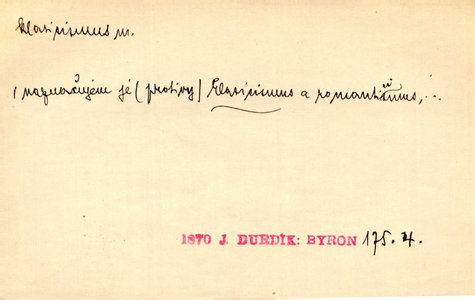 klasicismus m.
i naznačujeme je (protivy) klasicismus a romanticismus, ...
1870 J. DURDÍK: BYRON 175. 4.